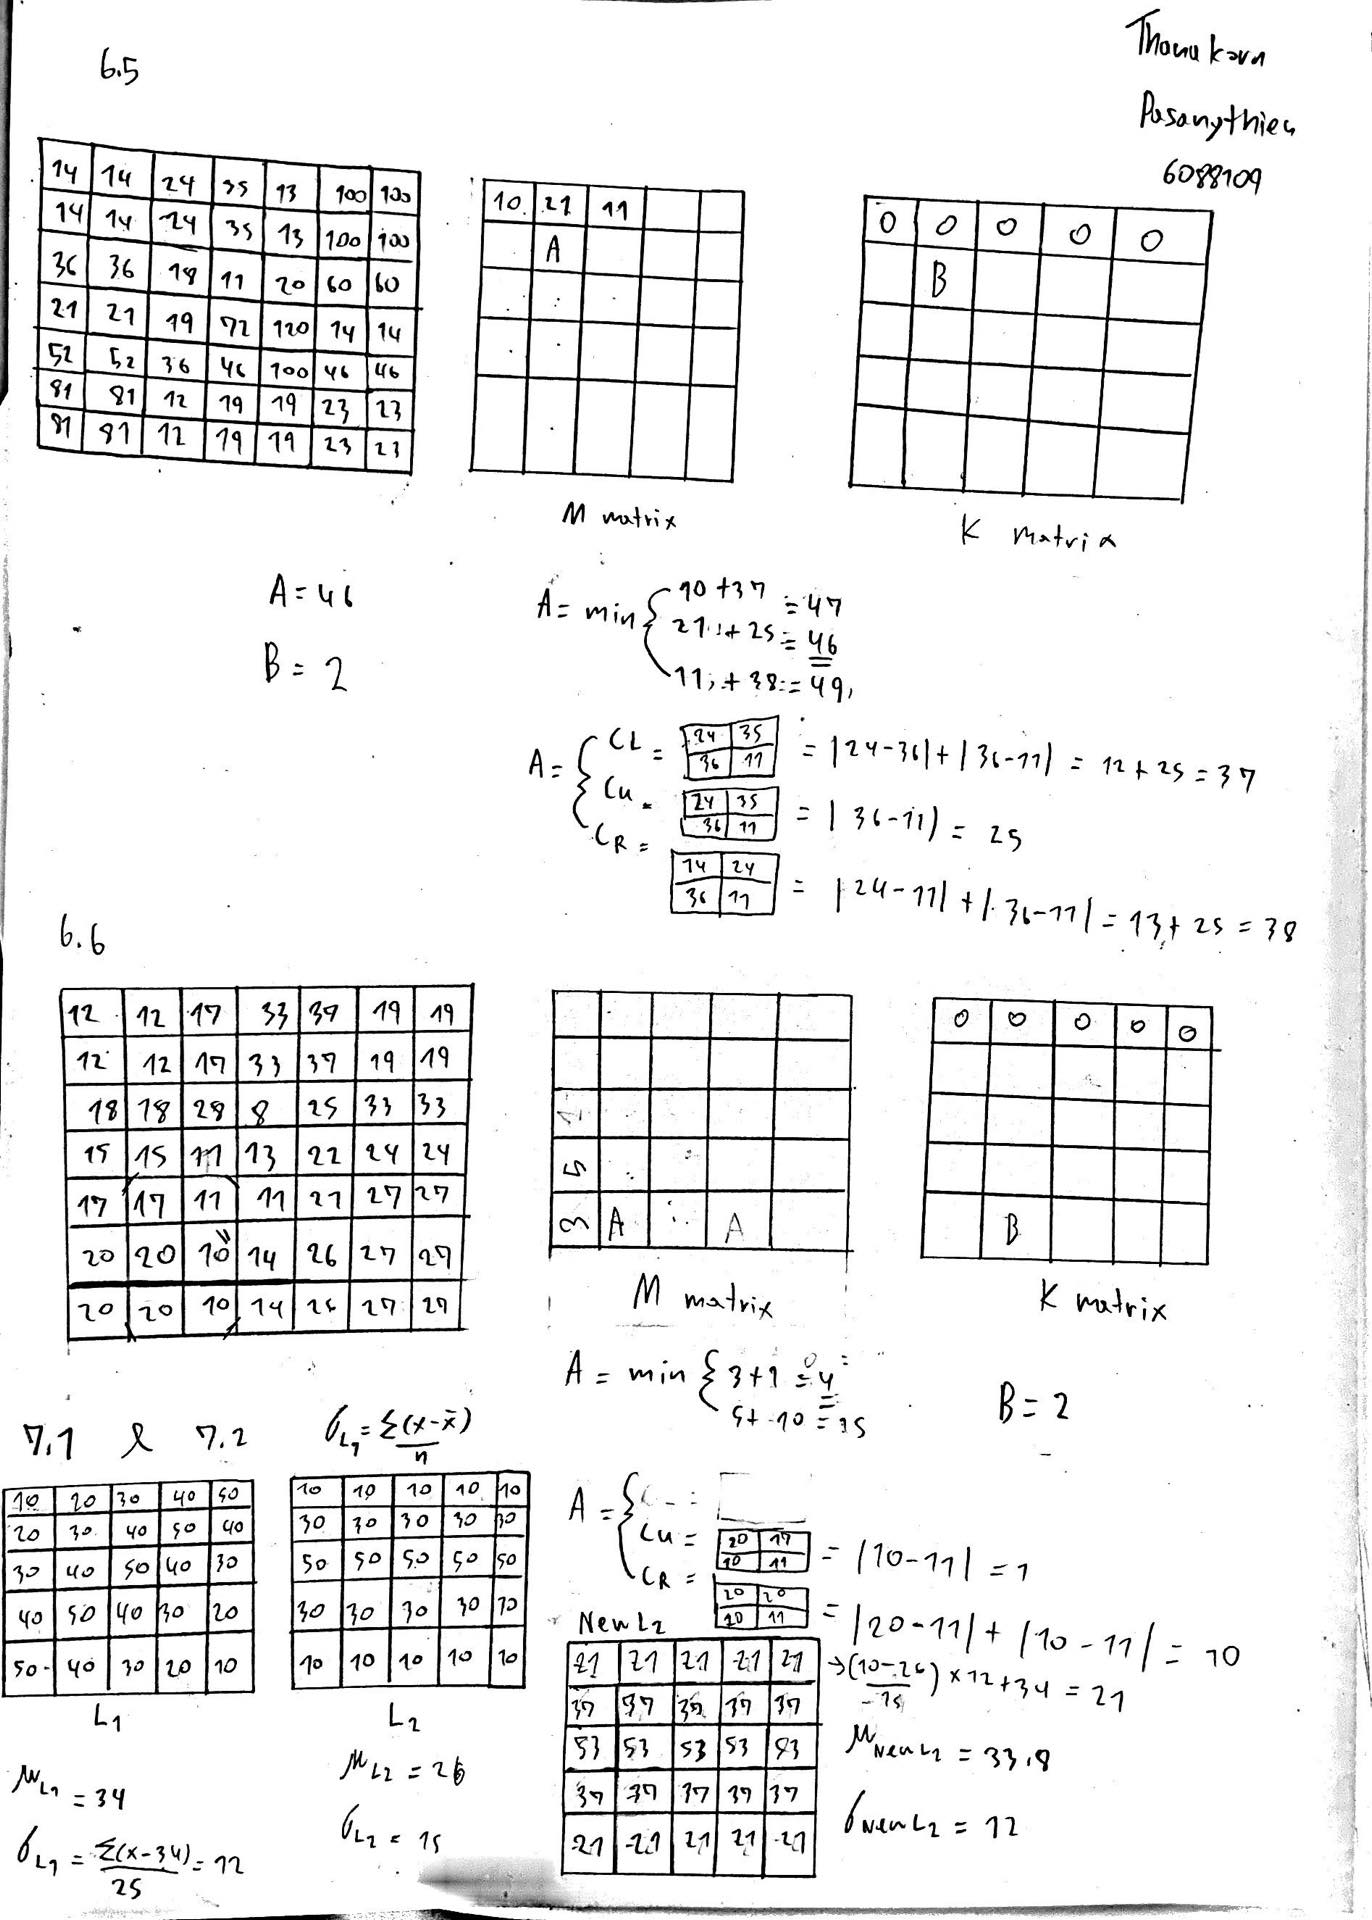 Thanakorn
Pasanythien
6088109
6.5
14 14 24 35 13 100 100
14 14 24 35 13 100 100
36 36 18 11 20 60 60
21 21 19 72 120 14 14
52 52 36 46 100 46 46
81 81 12 19 19 23 23
81 81 12 19 19 23 23
10 21 11
A
M matrix
0 0 0 0 0
B
K matrix
A = 46
B = 2
A = min { 10 + 37 = 47
21 + 25 = 46
11 + 38 = 49
A = { CL = 24 35 36 11 = |24-36| + |36-11| = 12 + 25 = 37
Cu = 24 35 36 11 = |36-11| = 25
CR = 14 24 36 11 = |24-11| + |36-11| = 13 + 25 = 38
6.6
12 12 17 33 37 19 19
12 12 17 33 37 19 19
18 18 28 8 25 33 33
15 15 11 13 22 24 24
17 17 11 11 21 27 27
20 20 10 14 26 27 27
20 20 10 14 26 27 27
5
3 A A
M matrix
0 0 0 0 0
B
K matrix
A = min { 3 + 1 = 4
5 + 10 = 15
B = 2
A = {
Cu = 20 17 10 11 = |10-11| = 1
CR = 20 20 10 11 = |20-11| + |10-11| = 10
7.1 & 7.2
σL1 = Σ(x-x̄) / n
10 20 30 40 50
20 30 40 50 40
30 40 50 40 30
40 50 40 30 20
50 40 30 20 10
L1
μL1 = 34
σL1 = Σ(x-34) / 25 = 12
10 10 10 10 10
30 30 30 30 30
50 50 50 50 50
30 30 30 30 30
10 10 10 10 10
L2
μL2 = 26
σL2 = 15
New L2
21 21 21 21 21 → (10-26 / 15) × 12 + 34 = 21
37 37 37 37 37
53 53 53 53 53
37 37 37 37 37
21 21 21 21 21
μNew L2 = 33.8
σNew L2 = 12